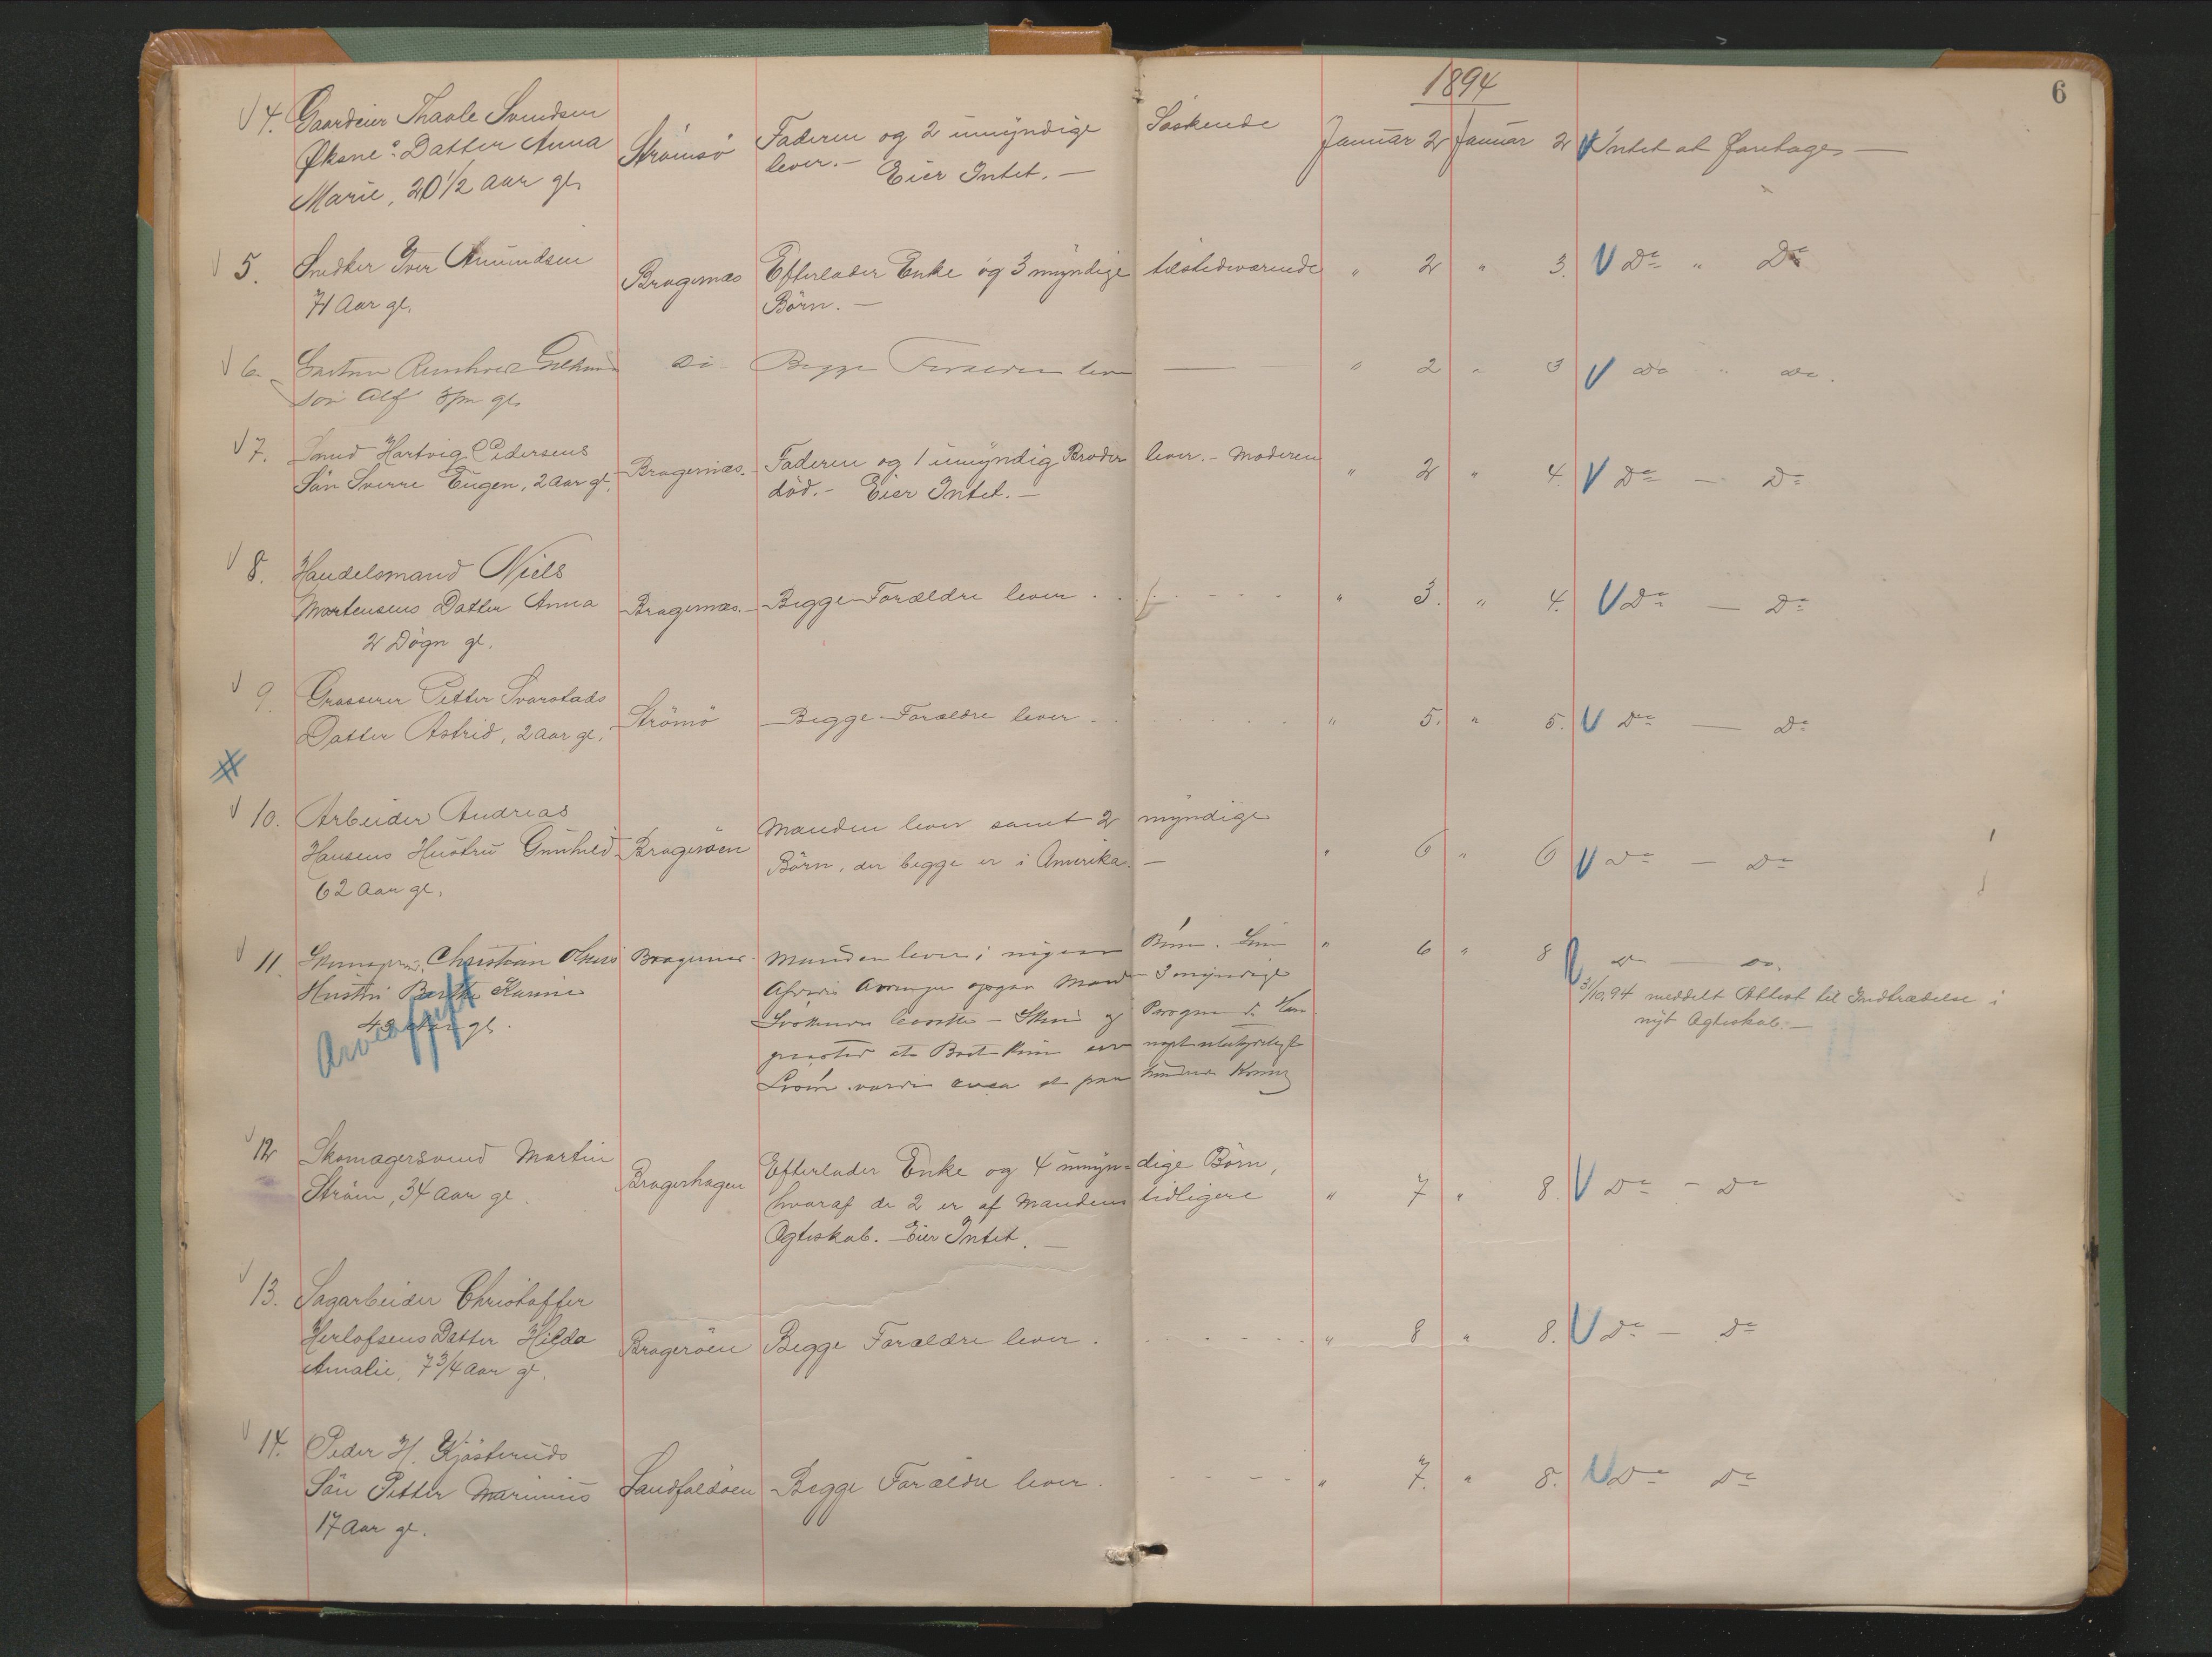 1894
6
4. Gaardeier Thaale Svendsen
Øksne's Datter Anna
Marie, 20 1/2 Aar gl.
Strømsö
Faderen og 2 umyndige Söskende
lever. - Eier Intet. -
Januar 2 Januar 2 Intet at foretage -
5. Snedker Iver Amundsen
71 Aar gl.
Bragernæs
Efterlader Enke og 3 myndige tilstedeværende
Börn. -
" 2 " 3. Do " Do
6.
Sön Alf gl.
Do
Begge Forældre lever
" 2 " 3 Do " Do.
7. Smed Hartvig Pedersens
Sön Sverre Eugen, 2 Aar gl.
Bragernæs.
Faderen og 1 umyndig Broder lever. - Moderen
död. - Eier Intet. -
" 2 " 4. Do - Do
8. Handelsmand Niels
Mortensens Datter Anna
2 Dögn gl.
Bragernæs. -
Begge Forældre lever.
" 3. " 4. Do - Do
9. Grosserer Petter Svarstads
Datter Astrid, 2 Aar gl.
Strömsö
Begge Forældre lever.
" 5. " 5. Do - Do
10. Arbeider Andreas
Hansens Hustru Gunhild
62 Aar gl.
Bragerøen
Manden lever samt 2 myndige
Börn, der begge er i Amerika. -
" 6 " 6 Do - Do
11. Christian Olsens
Hustru Berthe Karine
43 Aar gl.
Arveafgift
Bragernæs
Manden lever; ingen Börn.
3 myndige
Kroner
" 6 " 8 Do - Do.
31/10 94 meddelt Attest til Indtrædelse i
nyt Ægteskab. -
12 Skomagersvend Martin
Ström, 34 Aar gl.
Bragerhagen
Efterlader Enke og 4 umyn= dige Börn,
hvoraf de 2 er af Mandens tidligere
Ægteskab. - Eier Intet. -
" 7 " 8. Do - Do
13. Sagarbeider Christoffer
Herlofsens Datter Hilda
Amalie, 7 3/4 Aar gl.
Bragerøen
Begge Forældre lever.
" 8 " 8. Do - Do
14. Peder H. Kjösteruds
Sön Petter Marinius
17 Aar gl.
Landfaldöen
Begge Forældre lever.
" 7. " 8. Do Do